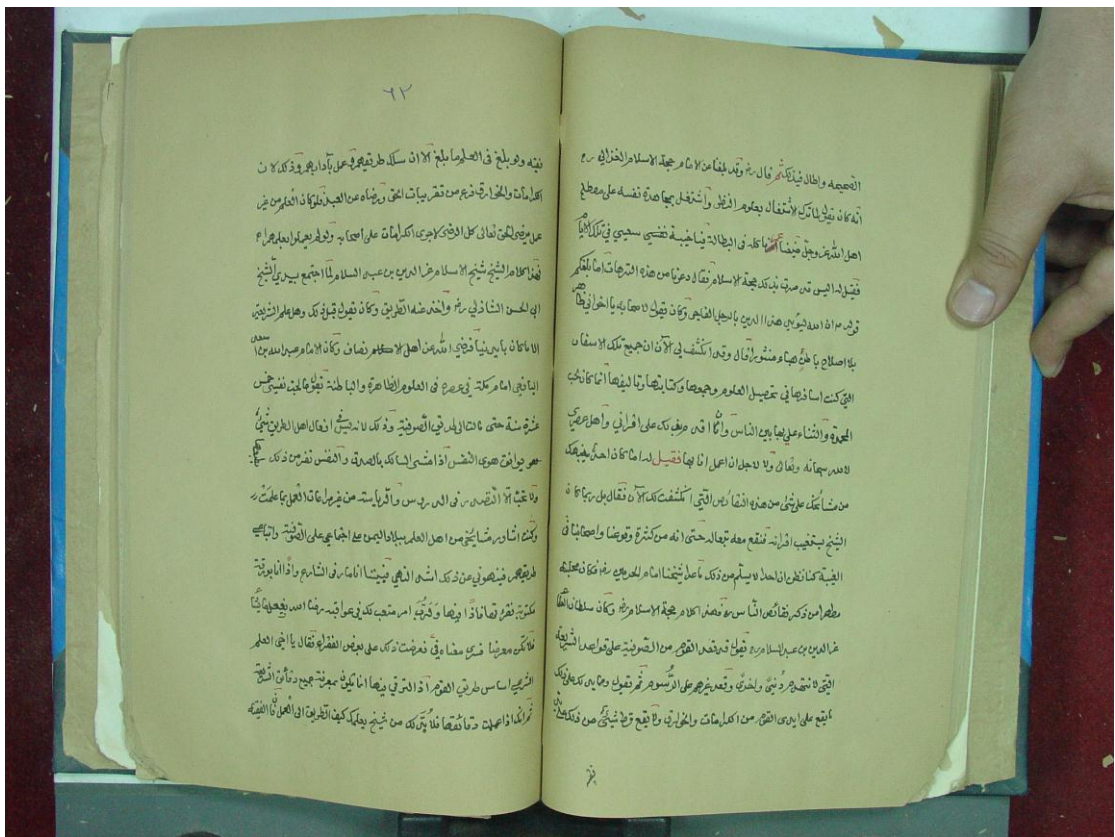 الصحيحه واطال في ذلك ثم قال رضه وقد بلغنا عن الامام حجة الاسلام الغزالي ره
انه كان يقول لما ترك الاشتغال بعلوم النظر واشتغل بمجاهدة نفسه على مصطلح
اهل الله عز وجل ضيعنا عمرنا كله في البطالة فياخيبة نفسي سعيي في تلك الايام
فقيل له اليس قد صرت بذلك حجة الاسلام فقال دعونا من هذه الترهات اما بلغكم
قوله م ان الله ليؤيد هذا الدين بالرجل الفاجر وكان يقول لاصحابه يا اخواني ظاهر
بلا اصلاح باطن هباء منثورا قال وقد انكشف لي الآن ان جميع تلك الاسفار
التي كنت اسافرها في تحصيل العلوم وجمعها وكتابتها وتاليفها انما كان لحب
المحمدة والثناء علي بها بين الناس واقراني واهل عصري
لا لله سبحانه وتعالى ولا لاجل ان اعمل انا بها فقيل له اما كان احد ينبهك
من مشائخك على شئ من هذه النقائص التي انكشفت لك الآن فقال بل ربما كان
الشيخ يستغيب اقرانه فنقع معه تبعا له حتى انه من كثرة وقوعنا واصحابنا في
الغيبة كنا نظن ان احدا لا يسلم من ذلك ما عدا شيخنا امام الحرمين رضه فكان مجلسه
مطهرا من ذكر نقائص الناس فهذا كلام حجة الاسلام رضه وكان سلطان العلماء
عز الدين بن عبد السلام ره يقول قد قعد القوم من الصوفية على قواعد الشريعة
التي لا تنهدم دنيى واخرى وقعد غيرهم على الرسوم ثم يقول ومما يدلك على ذلك
ما يقع على ايدي القوم من الكرامات والخوارق ولا يقع قط شيئ من ذلك على يد
فقيه
٦٢
فقيه ولو بلغ في العلم ما بلغ الا ان سلك طريقهم وعمل بآدابهم وذلك لان
الكرامات والخوارق فرع من تقريبات الحق ورضاه عن العبد فلو كان العلم من غير
عمل يرضي الحق تعالى كل الرضى لاجرى الكرامات على اصحابه ولو لم يعملوا بعلمهم
فهذا كلام الشيخ شيخ الاسلام عز الدين بن عبد السلام لما اجتمع بسيدي الشيخ
ابي الحسن الشاذلي رضه واخذ عنه الطريق وكان يقول قبل ذلك وهل علم الشريعة
الا ما كان بايدينا فرضي الله عن اهل الانصاف وكان الامام عبد الله بن اسعد
اليافعي امام مكة في عصره في العلوم الظاهرة والباطنة يقول ما لحق نفسي خمس
عشرة سنة حتى مالت الى طريق الصوفية وذلك لانه ليس في افعال اهل الطريق شئ
يوافق هوى النفس اذا مشى السالك بالصدق والنفس تفر من ذلك
ولا تحب الا التصدر في الدروس والرياسة من غير مراعات العمل بما علمت
وكنت اشاور مشايخي من اهل العلم ببلاد اليمن في اجتماعي على الصوفية واتباعي
طريقهم فينهوني عن ذلك اشد النهي فبينما انا مار في الشارع واذا انا بورقة
مكتوبة فقرأتها فاذا فيها
فلا تكن معرضا فسرى معناه في فعرضت ذلك على بعض الفقراء فقال يا اخي العلم
الشرعي اساس طريق القوم اذ الترقي فيها انما يكون بمعرفة جميع دقائق الشريعة
ثم انك اذا عملت دقائقها فلا بد لك من شيخ يعلمك كيف الطريق الى العمل